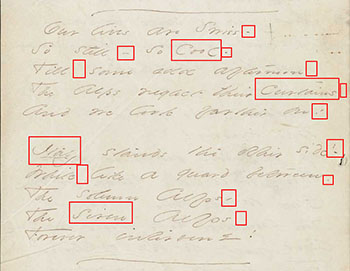 Our lives are Swiss -
So still - so Cool -
Till some odd afternoon
The Alps neglect their Curtains
And we look farther on -
Italy stands the other side!
While like a guard between -
The solemn Alps -
The siren Alps
Forever intervene!